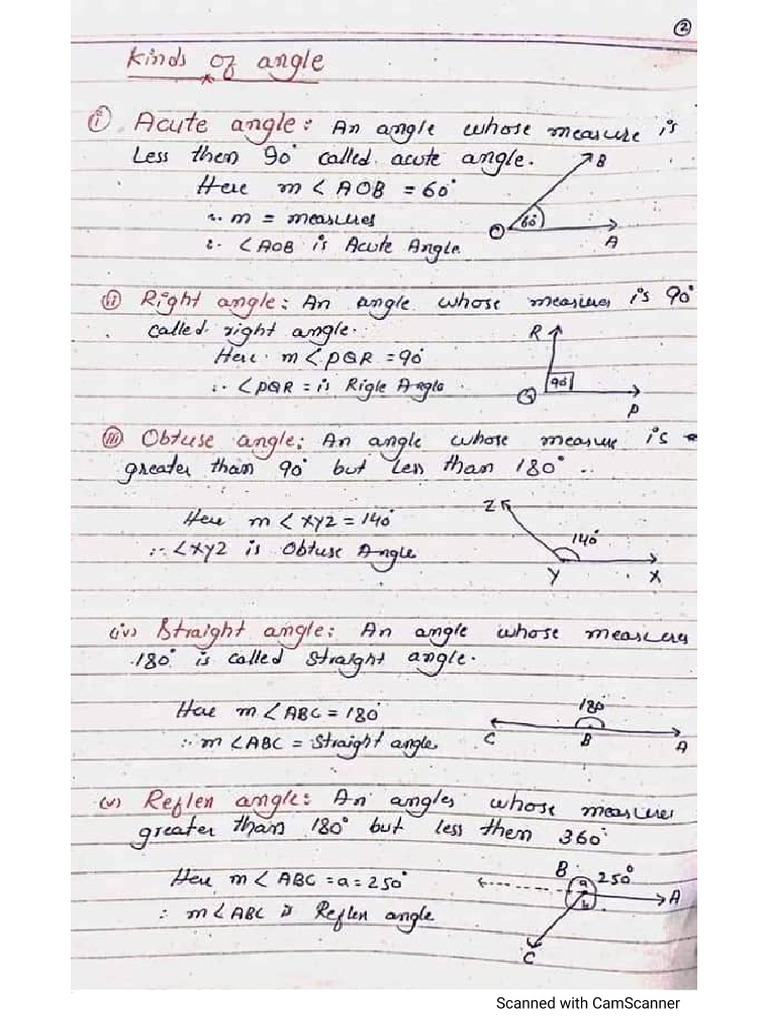 ②
Kinds of angle
(i) Acute angle: An angle whose measure is
Less then 90° called acute angle.
Here m < AOB = 60°
∵ m = measures
∴ < AOB is Acute Angle
B
60°
O
A
(ii) Right angle: An angle whose measures is 90°
called right angle.
Here m < PQR = 90°
∴ < PQR = is Rigle Angle
R
90°
Q
P
(iii) Obtuse angle: An angle whose measure is
greater than 90° but Less than 180°
Here m < XYZ = 140°
∴ < XYZ is Obtuse Angle
Z
140°
Y
X
(iv) Straight angle: An angle whose measures
180° is called straight angle.
Here m < ABC = 180°
∴ m < ABC = Straight angle
180
C
B
A
(v) Reflen angle: An angles whose measures
greater than 180° but less them 360°
Here m < ABC = a = 250°
∴ m < ABC is Reflen angle
B
250°
a
b
A
C
Scanned with CamScanner